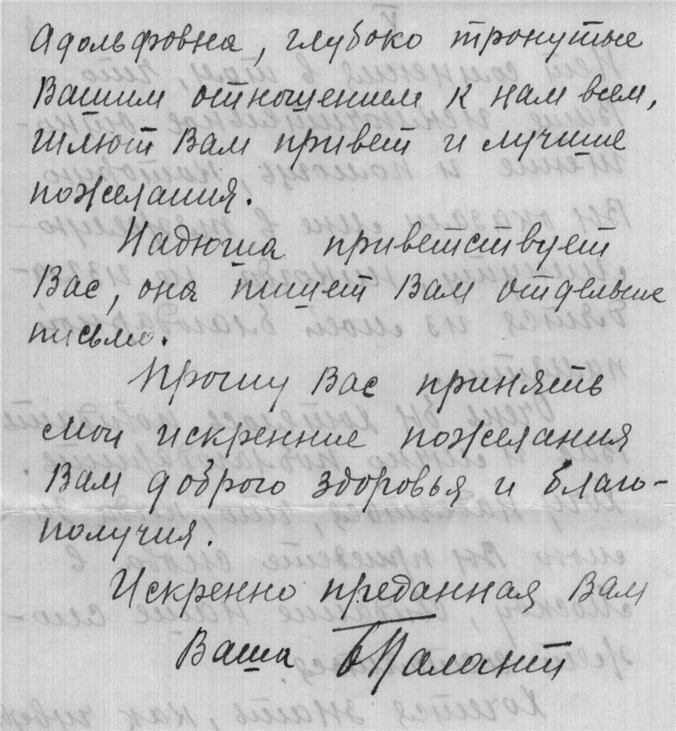 Адольфовна, глубоко тронутые
Вашим отношением к нам всем,
шлют Вам привет и лучшие
пожелания.
Надюша приветствует
Вас, она пишет Вам отдельное
письмо.
Прошу Вас принять
мои искренние пожелания
Вам доброго здоровья и благо-
получия.
Искренно преданная Вам
Ваша